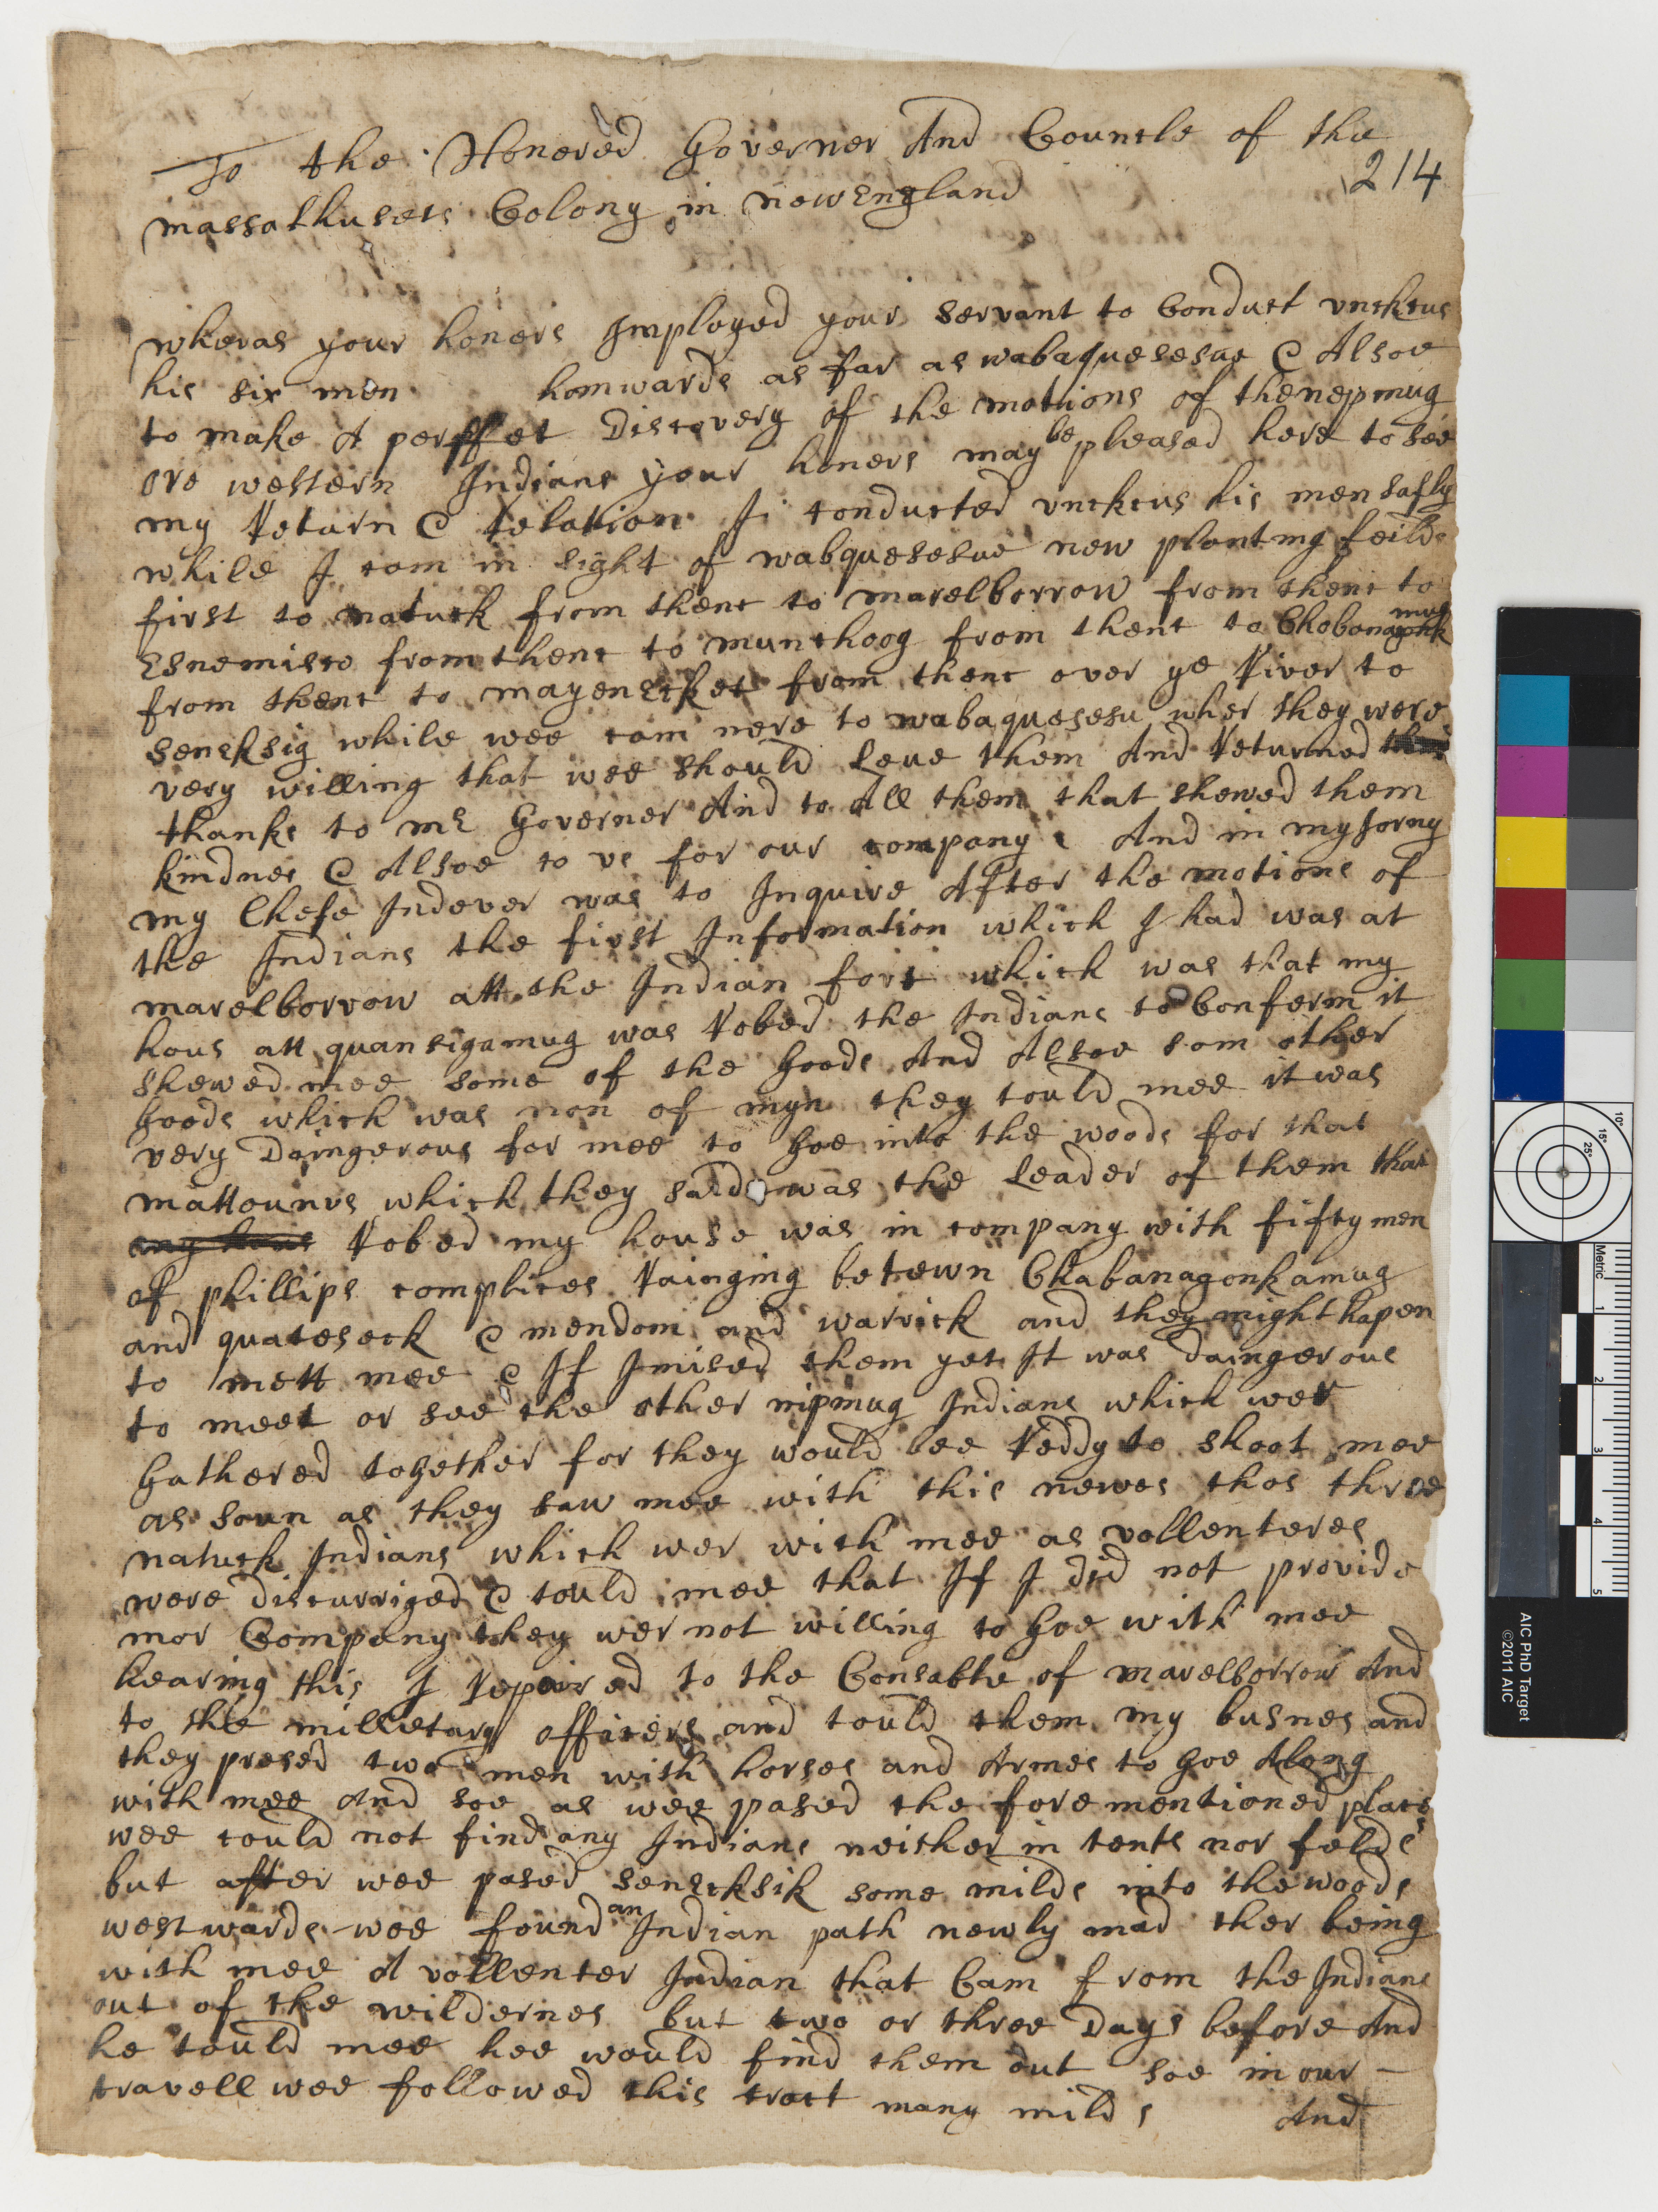 To the Honered Governer And Councle of the
214
massathusets Colony in new England
wheras your honers Imployed your servant to Conduct vnckcus
his six men homwards as far as wabaquesesue & Alsoe
to make A perffet Discovery of the motions of the nepmug
ore western Indians your honers may be pleased here to see
my Return & relation I conducted vnckcus his men safly
while I cam in sight of wabquesesue new planting feilds
first to natuck from thenc to marelborrow from thenc to
Esnemisco from thenc to munchoog from thenc to Chobonag mug
from thenc to mayenecket from thenc over ye River to
senecksig while wee cam nere to wabaquesesu wher they were
very willing that wee should Leue them And Returned
thanks to mr Governer And to All them that shewed them
kindnes & Alsoe to us for our company & And in my Jorny
my Chefe Indever was to Inquire After the motions of
the Indians the first Information which I had was at
marelborrow att the Indian fort which was that my
hous att quansigamug was Robed the Indians to Conferm it
shewed mee some of the goods And Alsoe som other
goods which was non of myn they tould mee it was
very Daingerous for mee to goe into the woods for that
mattounus which they said was the Leader of them that
my hous Robed my house was in company with fifty men
of phillips complices Rainging betewn Chabanagonkamug
and quateseck & mendom and warrick and they might hapen
to mett mee & If I mised them yet It was daingerous
to meet or see the other nipmug Indians which wer
gathered together for they would bee Reddy to shoot mee
as soun as they saw mee with this newes thos three
natuck Indians which wer with mee as vollenteres
were discurriged & tould mee that If I did not provide
mor Company they wer not willing to goe with mee
hearing this I Repaired to the Consable of marelborrow And
to the milletary officers and tould them my busnes and
they presed two men with horses and Armes to goe Along
with mee And soe as wee pased the fore mentioned places
wee could not find any Indians neither in tents nor felds
but after wee pased senecksik some milds into the woods
westwards wee found an Indian path newly mad ther being
with mee A vollenter Indian that Cam from the Indians
out of the wildernes but two or three Days before And
he tould mee hee would find them out soe in our -
travell wee followed this tract many milds And
AIC PhD Target
©2011 AIC
Metric
1
2
3
4
5
10°
15°
25°